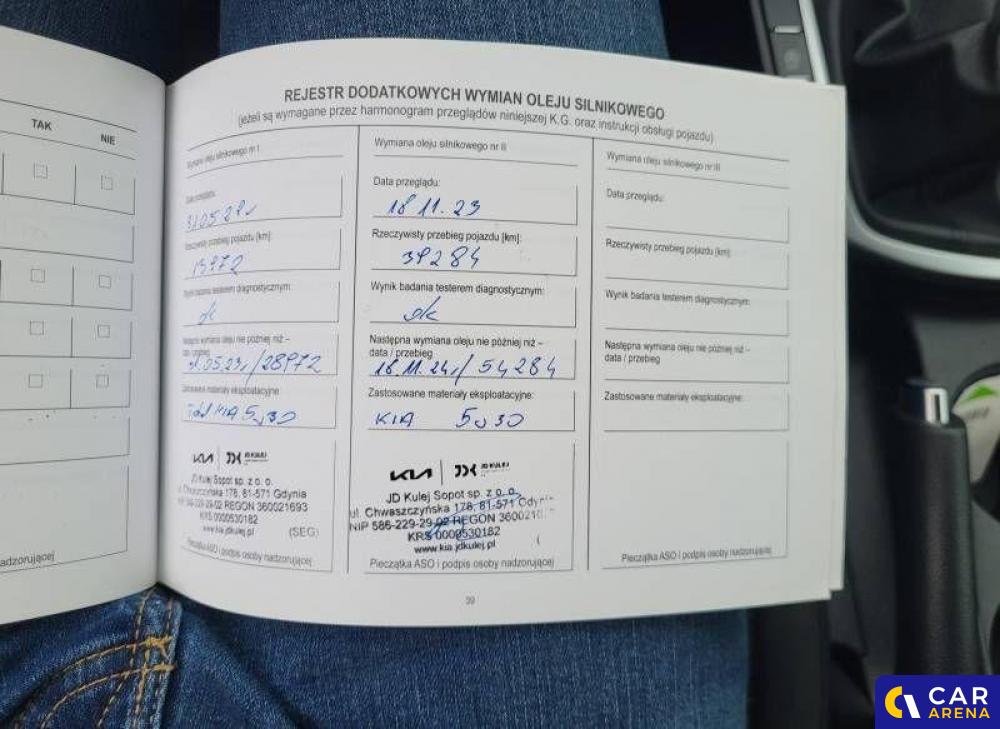 TAK NIE
adzorującej
REJESTR DODATKOWYCH WYMIAN OLEJU SILNIKOWEGO
(jeżeli są wymagane przez harmonogram przeglądów niniejszej K.G. oraz instrukcji obsługi pojazdu)
Wymiana oleju silnikowego nr I
Data przeglądu:
Rzeczywisty przebieg pojazdu [km]:
13972
Wynik badania testerem diagnostycznym:
ok
Następna wymiana oleju nie później niż –
data / przebieg
31.05.23r/28972
Zastosowane materiały eksploatacyjne:
KIA 5w30
KIA JDK JD KULEJ
JD Kulej Sopot sp. z o. o.
ul. Chwaszczyńska 178, 81-571 Gdynia
586-229-29-02 REGON 360021693
KRS 0000530182
www.kia.jdkulej.pl (SEG)
Pieczątka ASO i podpis osoby nadzorującej
Wymiana oleju silnikowego nr II
Data przeglądu:
18.11.23
Rzeczywisty przebieg pojazdu [km]:
39284
Wynik badania testerem diagnostycznym:
ok
Następna wymiana oleju nie później niż –
data / przebieg
18.11.24r/54284
Zastosowane materiały eksploatacyjne:
KIA 5w30
KIA JDK JD KULEJ
JD Kulej Sopot sp. z o.o.
ul. Chwaszczyńska 178, 81-571 Gdynia
NIP 586-229-29-02 REGON 360021
KRS 0000530182
www.kia.jdkulej.pl (
Pieczątka ASO i podpis osoby nadzorującej
Wymiana oleju silnikowego nr III
Data przeglądu:
Rzeczywisty przebieg pojazdu [km]:
Wynik badania testerem diagnostycznym:
Następna wymiana oleju nie później niż –
data / przebieg
Zastosowane materiały eksploatacyjne:
Pieczątka ASO i podpis osoby nadzorującej
39
CAR
ARENA